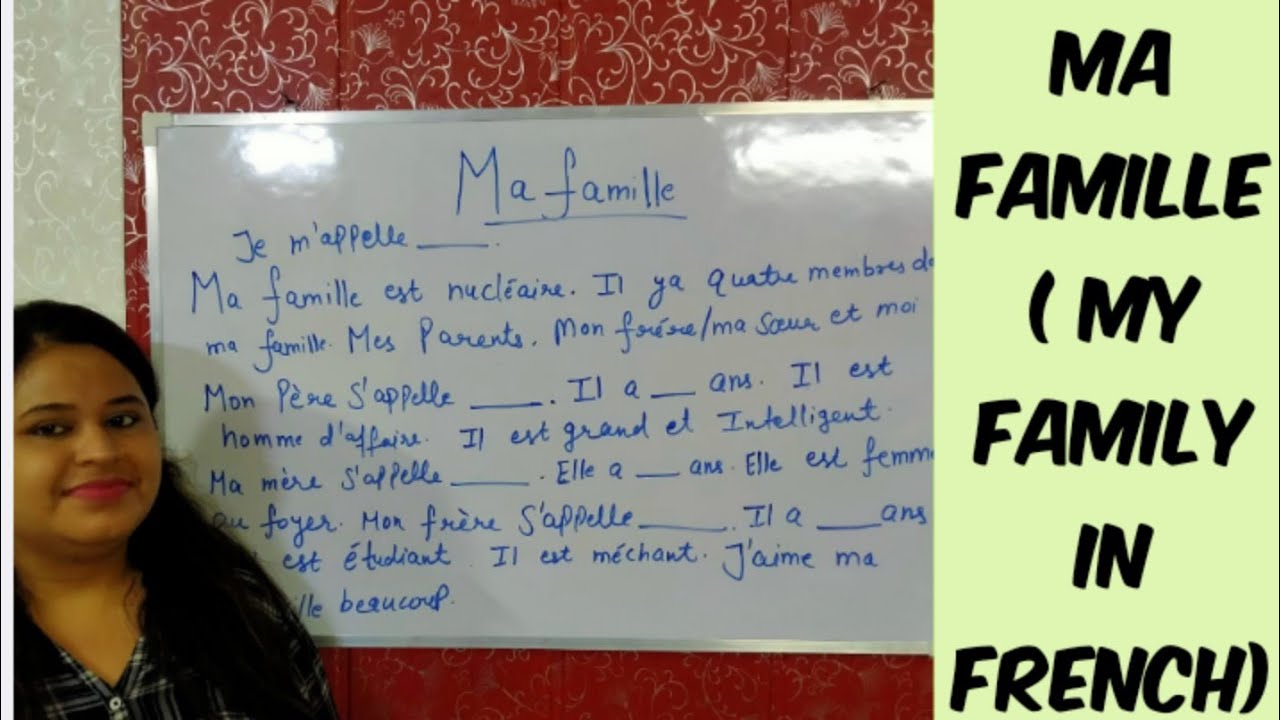 Ma famille
Je m'appelle ____.
Ma famille est nucléaire. Il ya quatre membres de
ma famille. Mes Parents. Mon frére/ma sœur et moi
Mon Père S'appelle ____. Il a __ ans. Il est
homme d'affaire. Il est grand et Intelligent.
Ma mère S'appelle ____. Elle a __ ans. Elle est femme
foyer. Mon frère S'appelle ____. Il a ___ ans
est étudiant. Il est méchant. J'aime ma
beaucoup.
MA
FAMILLE
( MY
FAMILY
IN
FRENCH)